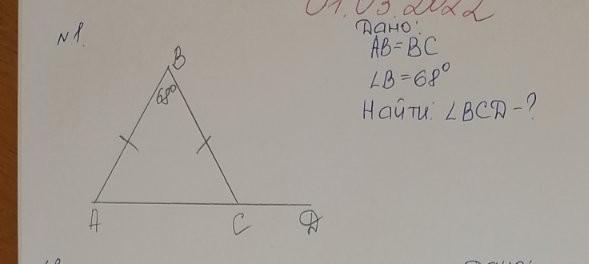 01.03.2022
№1.
Дано:
AB=BC
∠B=68°
Найти: ∠BCD-?
B
68°
A
C
D